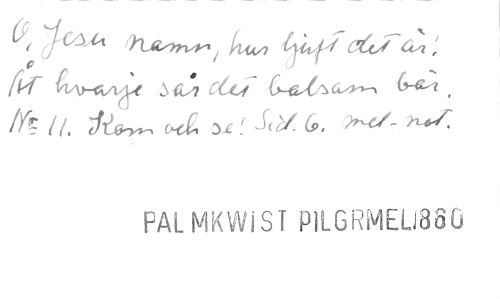 O, Jesu namn, hur ljuft det är!
Åt hvarje sår det balsam bär.
No 11. Kom och se! Sid. 6. mel-not.
PALMKWIST PILGRMEL1880